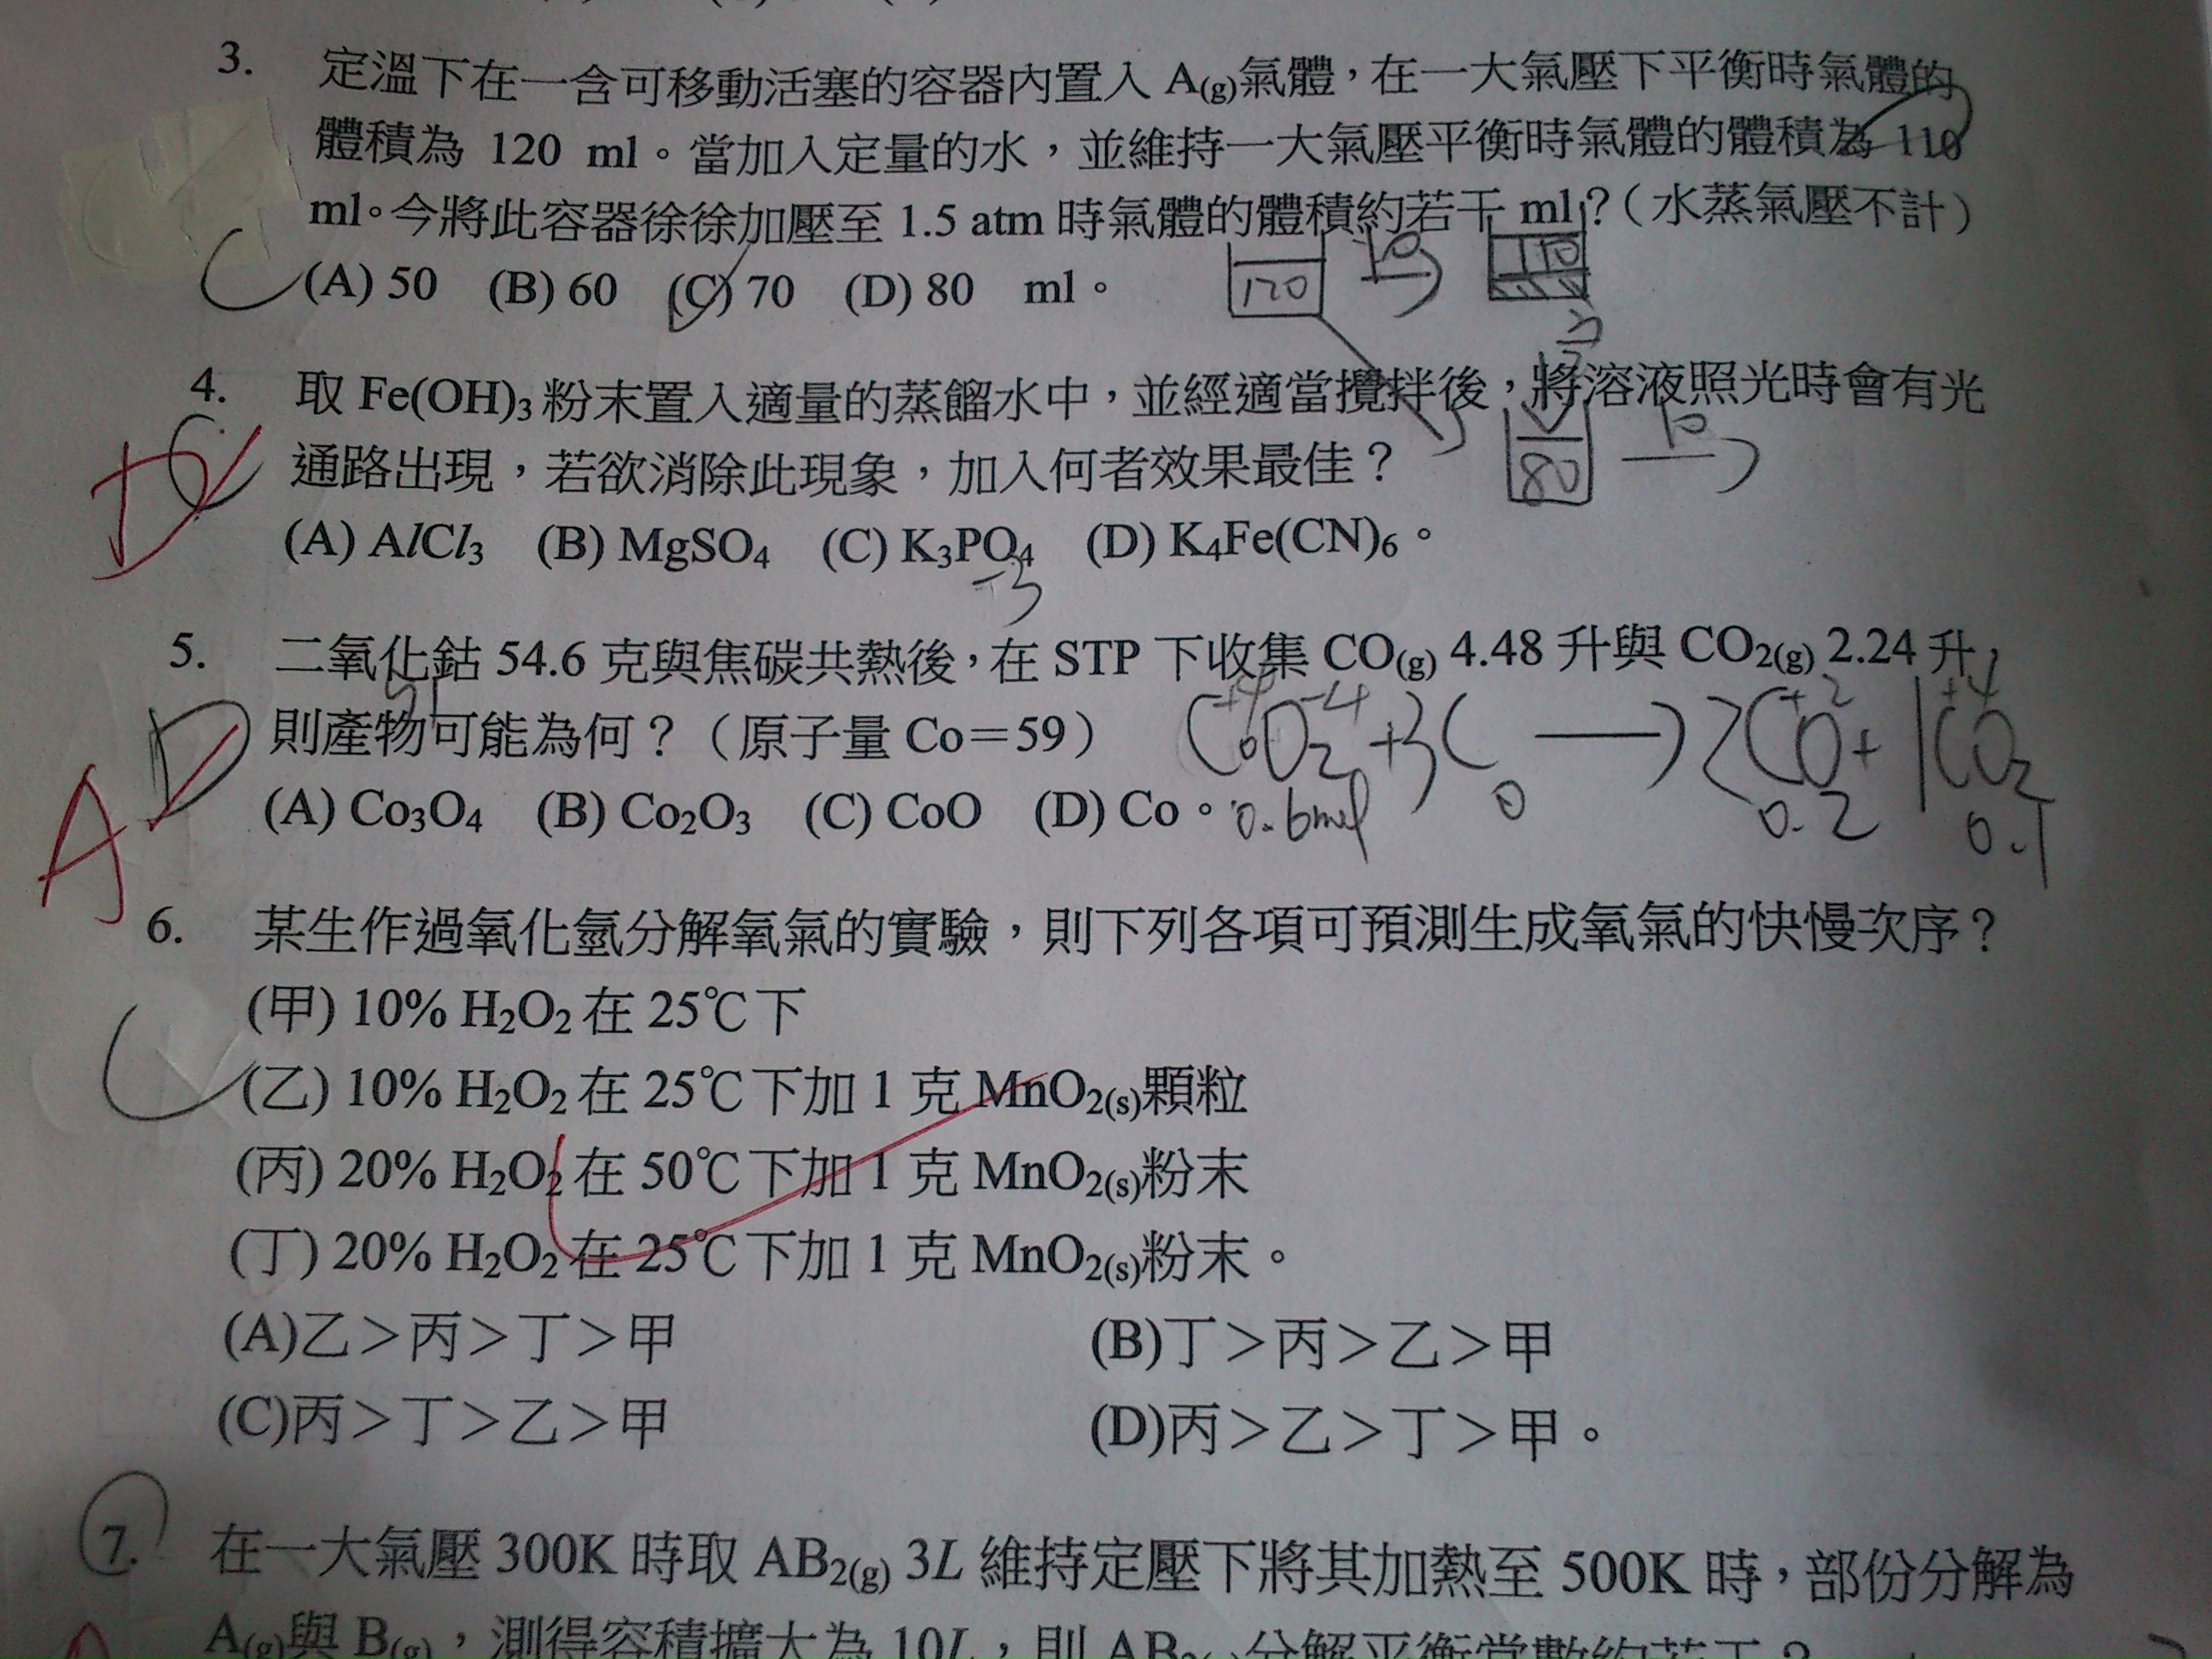 3. 定溫下在一含可移動活塞的容器內置入 A(g)氣體，在一大氣壓下平衡時氣體的
體積為 120 ml。當加入定量的水，並維持一大氣壓平衡時氣體的體積為 110
ml。今將此容器徐徐加壓至 1.5 atm 時氣體的體積約若干 ml？（水蒸氣壓不計）
C (A) 50 (B) 60 (C) 70 (D) 80 ml。
120 110
4. 取 Fe(OH)3 粉末置入適量的蒸餾水中，並經適當攪拌後，將溶液照光時會有光
通路出現，若欲消除此現象，加入何者效果最佳？
D C 80
(A) AlCl3 (B) MgSO4 (C) K3PO4 (D) K4Fe(CN)6。
-3
5. 二氧化鈷 54.6 克與焦碳共熱後，在 STP 下收集 CO(g) 4.48 升與 CO2(g) 2.24 升，
則產物可能為何？（原子量 Co＝59）
+4 -4 +2 +4
CoO2 + 3C → 2CO + 1CO2
A D
(A) Co3O4 (B) Co2O3 (C) CoO (D) Co。
0.6mol 0 0.2 0.1
6. 某生作過氧化氫分解氧氣的實驗，則下列各項可預測生成氧氣的快慢次序？
(甲) 10% H2O2 在 25℃下
C (乙) 10% H2O2 在 25℃下加 1 克 MnO2(s)顆粒
(丙) 20% H2O2 在 50℃下加 1 克 MnO2(s)粉末
(丁) 20% H2O2 在 25℃下加 1 克 MnO2(s)粉末。
(A)乙＞丙＞丁＞甲 (B)丁＞丙＞乙＞甲
(C)丙＞丁＞乙＞甲 (D)丙＞乙＞丁＞甲。
7. 在一大氣壓 300K 時取 AB2(g) 3L 維持定壓下將其加熱至 500K 時，部份分解為
A(g)與 B(g)，測得容積擴大為 10L，則 AB2(g)分解平衡常數約若干？